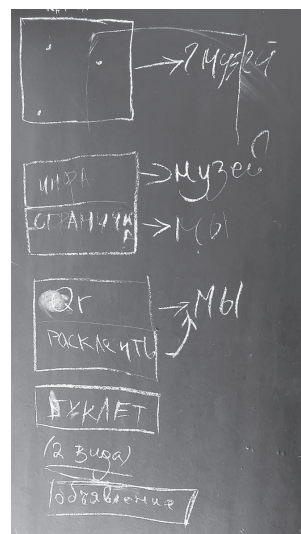 → ? музей
инфа → музей
страничка → мы
Qr → мы
расклеить
БУКЛЕТ
(2 вида)
объявление